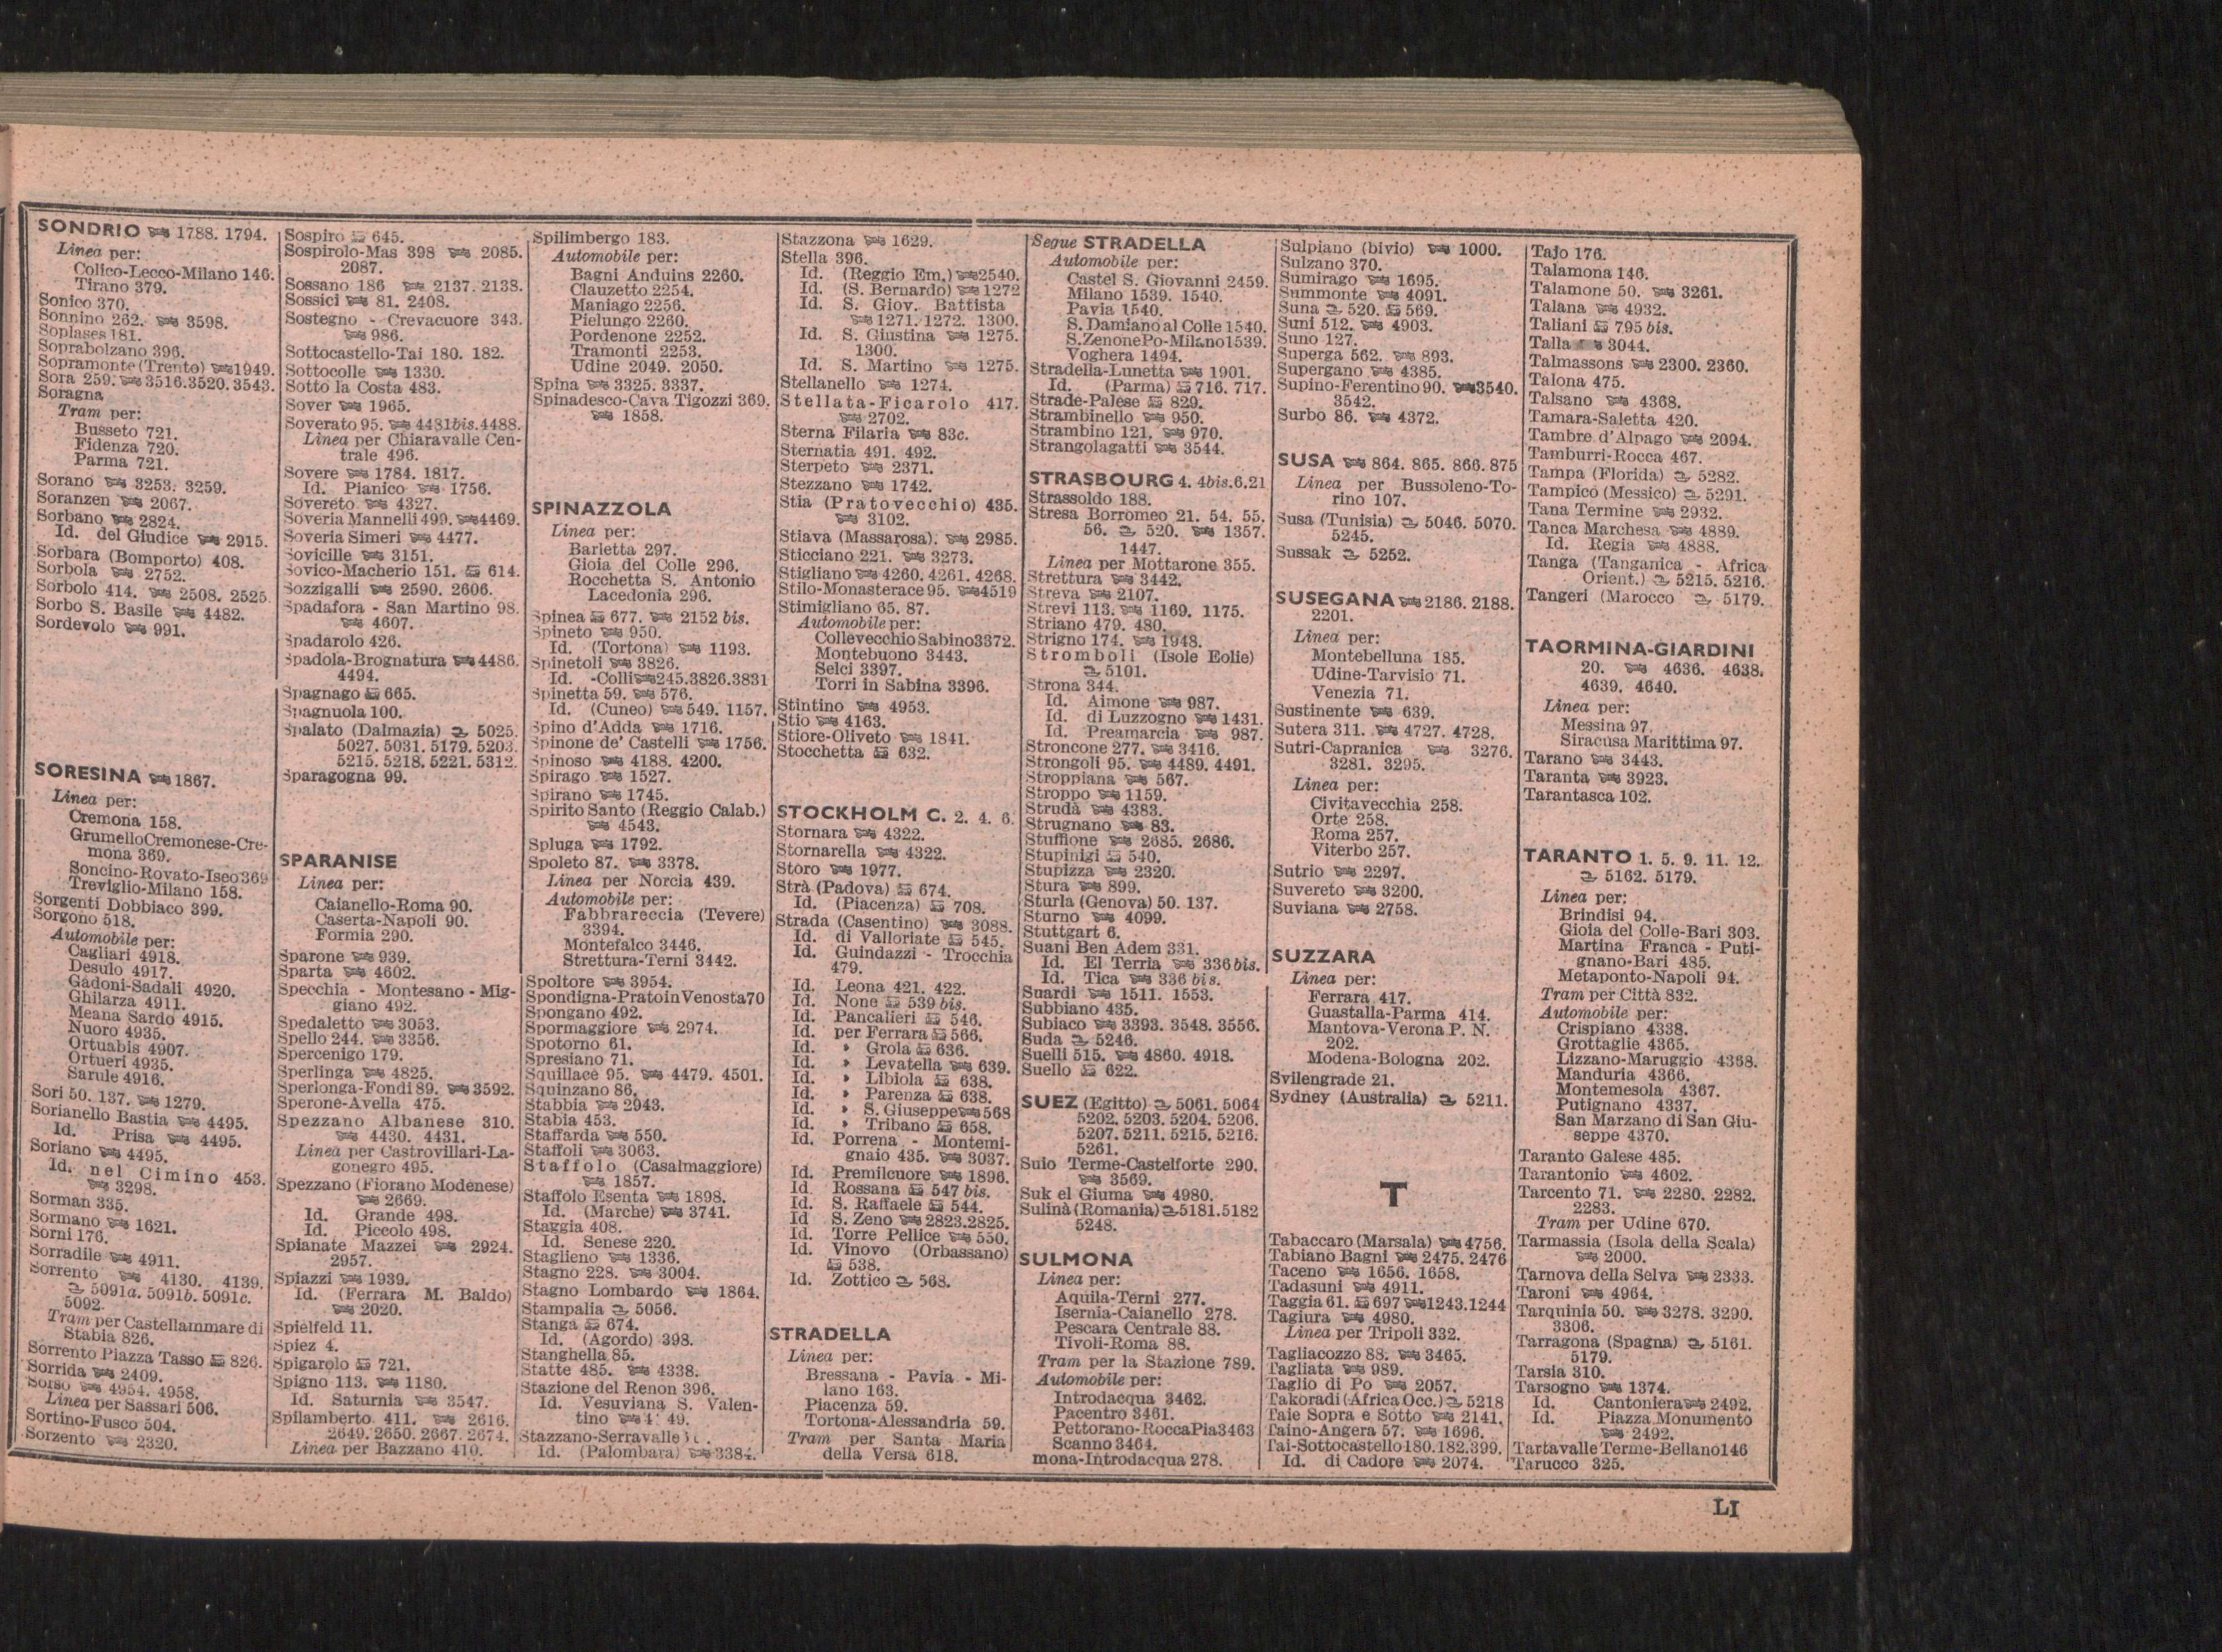 SONDRIO 1788. 1794.
Linea per:
Colico-Lecco-Milano 146.
Tirano 379.
Sonico 370.
Sonnino 262. 3598.
Soplases 181.
Soprabolzano 396.
Sopramonte (Trento) 1949.
Sora 259. 3516.3520.3543.
Soragna
Tram per:
Busseto 721.
Fidenza 720.
Parma 721.
Sorano 3253. 3259.
Soranzen 2067.
Sorbano 2824.
Id. del Giudice 2915.
Sorbara (Bomporto) 408.
Sorbola 2752.
Sorbolo 414. 2508. 2525.
Sorbo S. Basile 4482.
Sordevolo 991.
SORESINA 1867.
Linea per:
Cremona 158.
GrumelloCremonese-Cre-
mona 369.
Soncino-Rovato-Iseo369
Treviglio-Milano 158.
Sorgenti Dobbiaco 399.
Sorgono 518.
Automobile per:
Cagliari 4918.
Desulo 4917.
Gadoni-Sadali 4920.
Ghilarza 4911.
Meana Sardo 4915.
Nuoro 4935.
Ortuabis 4907.
Ortueri 4935.
Sarule 4916.
Sori 50. 137. 1279.
Sorianello Bastia 4495.
Id. Prisa 4495.
Soriano 4495.
Id. nel Cimino 453.
3298.
Sorman 335.
Sormano 1621.
Sorni 176.
Sorradile 4911.
Sorrento 4130. 4139.
5091a. 5091b. 5091c.
5092.
Tram per Castellammare di
Stabia 826.
Sorrento Piazza Tasso 826.
Sorrida 2409.
Sorso 4954. 4958.
Linea per Sassari 506.
Sortino-Fusco 504.
Sorzento 2320.
Sospiro 645.
Sospirolo-Mas 398 2085.
2087.
Sossano 186 2137. 2138.
Sossici 81. 2408.
Sostegno - Crevacuore 343.
986.
Sottocastello-Tai 180. 182.
Sottocolle 1330.
Sotto la Costa 483.
Sover 1965.
Soverato 95. 4481bis.4488.
Linea per Chiaravalle Cen-
trale 496.
Sovere 1784. 1817.
Id. Pianico 1756.
Sovereto 4327.
Soveria Mannelli 499. 4469.
Soveria Simeri 4477.
Sovicille 3151.
Sovico-Macherio 151. 614.
Sozzigalli 2590. 2606.
Spadafora - San Martino 98.
4607.
Spadarolo 426.
Spadola-Brognatura 4486.
4494.
Spagnago 665.
Spagnuola 100.
Spalato (Dalmazia) 5025.
5027. 5031. 5179. 5203.
5215. 5218. 5221. 5312.
Sparagogna 99.
SPARANISE
Linea per:
Caianello-Roma 90.
Caserta-Napoli 90.
Formia 290.
Sparone 939.
Sparta 4602.
Specchia - Montesano - Mig-
giano 492.
Spedaletto 3053.
Spello 244. 3356.
Spercenigo 179.
Sperlinga 4825.
Sperlonga-Fondi 89. 3592.
Sperone-Avella 475.
Spezzano Albanese 310.
4430. 4431.
Linea per Castrovillari-La-
gonegro 495.
Spezzano (Fiorano Modenese)
2669.
Id. Grande 498.
Id. Piccolo 498.
Spianate Mazzei 2924.
2957.
Spiazzi 1939.
Id. (Ferrara M. Baldo)
2020.
Spielfeld 11.
Spiez 4.
Spigarolo 721.
Spigno 113. 1180.
Id. Saturnia 3547.
Spilamberto 411. 2616.
2649. 2650. 2667. 2674.
Linea per Bazzano 410.
Spilimbergo 183.
Automobile per:
Bagni Anduins 2260.
Clauzetto 2254.
Maniago 2256.
Pielungo 2260.
Pordenone 2252.
Tramonti 2253.
Udine 2049. 2050.
Spina 3325. 3337.
Spinadesco-Cava Tigozzi 369.
1858.
SPINAZZOLA
Linea per:
Barletta 297.
Gioia del Colle 296.
Rocchetta S. Antonio
Lacedonia 296.
Spinea 677. 2152 bis.
Spineto 950.
Id. (Tortona) 1193.
Spinetoli 3826.
Id. -Colli 245.3826.3831
Spinetta 59. 576.
Id. (Cuneo) 549. 1157.
Spino d'Adda 1716.
Spinone de' Castelli 1756.
Spinoso 4188. 4200.
Spirago 1527.
Spirano 1745.
Spirito Santo (Reggio Calab.)
4543.
Spluga 1792.
Spoleto 87. 3378.
Linea per Norcia 439.
Automobile per:
Fabbrareccia (Tevere)
3394.
Montefalco 3446.
Strettura-Terni 3442.
Spoltore 3954.
Spondigna-PratoinVenosta70
Spongano 492.
Spormaggiore 2974.
Spotorno 61.
Spresiano 71.
Squillace 95. 4479. 4501.
Squinzano 86.
Stabbia 2943.
Stabia 453.
Staffarda 550.
Staffoli 3063.
Staffolo (Casalmaggiore)
1857.
Staffolo Esenta 1898.
Id. (Marche) 3741.
Staggia 408.
Id. Senese 220.
Staglieno 1336.
Stagno 228. 3004.
Stagno Lombardo 1864.
Stampalia 5056.
Stanga 674.
Id. (Agordo) 398.
Stanghella 85.
Statte 485. 4338.
Stazione del Renon 396.
Id. Vesuviana S. Valen-
tino
Stazzano-Serravalle
Id. (Palombara) 3384.
Stazzona 1629.
Stella 396.
Id. (Reggio Em.) 2540.
Id. (S. Bernardo) 1272
Id. S. Giov. Battista
1271. 1272. 1300.
Id. S. Giustina 1275.
1300.
Id. S. Martino 1275.
Stellanello 1274.
Stellata-Ficarolo 417.
2702.
Sterna Filaria 83c.
Sternatia 491. 492.
Sterpeto 2371.
Stezzano 1742.
Stia (Pratovecchio) 435.
3102.
Stiava (Massarosa). 2985.
Sticciano 221. 3273.
Stigliano 4260. 4261. 4268.
Stilo-Monasterace 95. 4519
Stimigliano 65. 87.
Automobile per:
Collevecchio Sabino3372.
Montebuono 3443.
Selci 3397.
Torri in Sabina 3396.
Stintino 4953.
Stio 4163.
Stiore-Oliveto 1841.
Stocchetta 632.
STOCKHOLM C. 2. 4. 6.
Stornara 4322.
Stornarella 4322.
Storo 1977.
Strà (Padova) 674.
Id. (Piacenza) 708.
Strada (Casentino) 3088.
Id. di Valloriate 545.
Id. Guindazzi - Trocchia
479.
Id. Leona 421. 422.
Id. None 539 bis.
Id. Pancalieri 546.
Id. per Ferrara 566.
Id. » Grola 636.
Id. » Levatella 639.
Id. » Libiola 638.
Id. » Parenza 638.
Id. » S. Giuseppe 568
Id. » Tribano 658.
Id. Porrena - Montemi-
gnaio 435. 3037.
Id. Premilcuore 1896.
Id. Rossana 547 bis.
Id. S. Raffaele 544.
Id S. Zeno 2823.2825.
Id. Torre Pellice 550.
Id. Vinovo (Orbassano)
538.
Id. Zottico 568.
STRADELLA
Linea per:
Bressana - Pavia - Mi-
lano 163.
Piacenza 59.
Tortona-Alessandria 59.
Tram per Santa Maria
della Versa 618.
Segue STRADELLA
Automobile per:
Castel S. Giovanni 2459.
Milano 1539. 1540.
Pavia 1540.
S. Damiano al Colle 1540.
S.ZenonePo-Milano1539.
Voghera 1494.
Stradella-Lunetta 1901.
Id. (Parma) 716. 717.
Strade-Palese 829.
Strambinello 950.
Strambino 121. 970.
Strangolagatti 3544.
STRASBOURG 4. 4bis.6.21
Strassoldo 188.
Stresa Borromeo 21. 54. 55.
56. 520. 1357.
1447.
Linea per Mottarone 355.
Strettura 3442.
Streva 2107.
Strevi 113. 1169. 1175.
Striano 479. 480.
Strigno 174. 1948.
Stromboli (Isole Eolie)
5101.
Strona 344.
Id. Aimone 987.
Id. di Luzzogno 1431.
Id. Preamarcia 987.
Stroncone 277. 3416.
Strongoli 95. 4489. 4491.
Stroppiana 567.
Stroppo 1159.
Strudà 4383.
Strugnano 83.
Stuffione 2685. 2686.
Stupinigi 540.
Stupizza 2320.
Stura 899.
Sturla (Genova) 50. 137.
Sturno 4099.
Stuttgart 6.
Suani Ben Adem 331.
Id. El Terria 336bis.
Id. Tica 336 bis.
Suardi 1511. 1553.
Subbiano 435.
Subiaco 3393. 3548. 3556.
Suda 5246.
Suelli 515. 4860. 4918.
Suello 622.
SUEZ (Egitto) 5061. 5064
5202. 5203. 5204. 5206.
5207. 5211. 5215. 5216.
5261.
Suio Terme-Castelforte 290.
3569.
Suk el Giuma 4980.
Sulinà (Romania) 5181.5182
5248.
SULMONA
Linea per:
Aquila-Terni 277.
Isernia-Caianello 278.
Pescara Centrale 88.
Tivoli-Roma 88.
Tram per la Stazione 789.
Automobile per:
Introdacqua 3462.
Pacentro 3461.
Pettorano-RoccaPia3463
Scanno 3464.
mona-Introdacqua 278.
Sulpiano (bivio) 1000.
Sulzano 370.
Sumirago 1695.
Summonte 4091.
Suna 520. 569.
Suni 512. 4903.
Suno 127.
Superga 562. 893.
Supergano 4385.
Supino-Ferentino 90. 3540.
3542.
Surbo 86. 4372.
SUSA 864. 865. 866. 875
Linea per Bussoleno-To-
rino 107.
Susa (Tunisia) 5046. 5070.
5245.
Sussak 5252.
SUSEGANA 2186. 2188.
2201.
Linea per:
Montebelluna 185.
Udine-Tarvisio 71.
Venezia 71.
Sustinente 639.
Sutera 311. 4727. 4728.
Sutri-Capranica 3276.
3281. 3295.
Linea per:
Civitavecchia 258.
Orte 258.
Roma 257.
Viterbo 257.
Sutrio 2297.
Suvereto 3200.
Suviana 2758.
SUZZARA
Linea per:
Ferrara 417.
Guastalla-Parma 414.
Mantova-Verona P. N.
202.
Modena-Bologna 202.
Svilengrade 21.
Sydney (Australia) 5211.
T
Tabaccaro (Marsala) 4756.
Tabiano Bagni 2475. 2476
Taceno 1656. 1658.
Tadasuni 4911.
Taggia 61. 697 1243.1244
Tagiura 4980.
Linea per Tripoli 332.
Tagliacozzo 88. 3465.
Tagliata 989.
Taglio di Po 2057.
Takoradi (Africa Occ.) 5218
Taie Sopra e Sotto 2141.
Taino-Angera 57. 1696.
Tai-Sottocastello180.182.399.
Id. di Cadore 2074.
Tajo 176.
Talamona 146.
Talamone 50. 3261.
Talana 4932.
Taliani 795 bis.
Talla 3044.
Talmassons 2300. 2360.
Talona 475.
Talsano 4368.
Tamara-Saletta 420.
Tambre d'Alpago 2094.
Tamburri-Rocca 467.
Tampa (Florida) 5282.
Tampico (Messico) 5291.
Tana Termine 2932.
Tanca Marchesa 4889.
Id. Regia 4888.
Tanga (Tanganica - Africa
Orient.) 5215. 5216.
Tangeri (Marocco 5179.
TAORMINA-GIARDINI
20. 4636. 4638.
4639. 4640.
Linea per:
Messina 97.
Siracusa Marittima 97.
Tarano 3443.
Taranta 3923.
Tarantasca 102.
TARANTO 1. 5. 9. 11. 12.
5162. 5179.
Linea per:
Brindisi 94.
Gioia del Colle-Bari 303.
Martina Franca - Puti-
gnano-Bari 485.
Metaponto-Napoli 94.
Tram per Città 832.
Automobile per:
Crispiano 4338.
Grottaglie 4365.
Lizzano-Maruggio 4368.
Manduria 4366.
Montemesola 4367.
Putignano 4337.
San Marzano di San Giu-
seppe 4370.
Taranto Galese 485.
Tarantonio 4602.
Tarcento 71. 2280. 2282.
2283.
Tram per Udine 670.
Tarmassia (Isola della Scala)
2000.
Tarnova della Selva 2333.
Taroni 4964.
Tarquinia 50. 3278. 3290.
3306.
Tarragona (Spagna) 5161.
5179.
Tarsia 310.
Tarsogno 1374.
Id. Cantoniera 2492.
Id. Piazza Monumento
2492.
TartavalleTerme-Bellano146
Tarucco 325.
LI